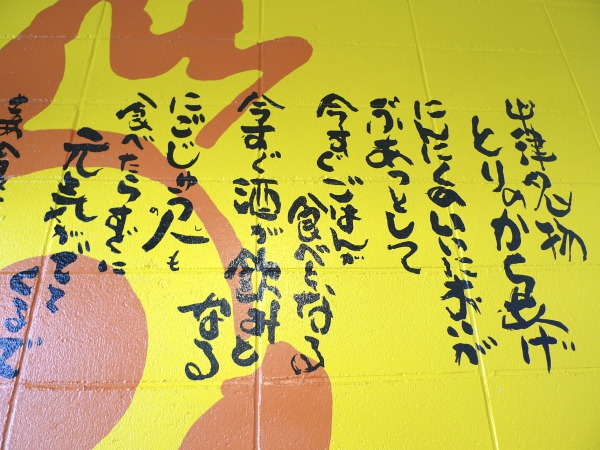 中津名物
とりのから揚げ
にんにくのいいにおいが
ぶあっとして
今すぐごはんが
食べたくなる
今すぐ酒が飲みたく
なる
にごじゅう人も
食べたらすぐに
元気がでて
くるぞ